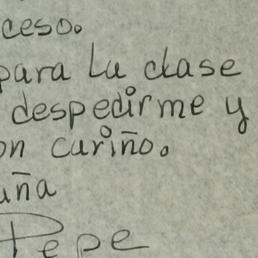 ceso.
para la clase
despedirme y
on cariño.
uña
Pepe